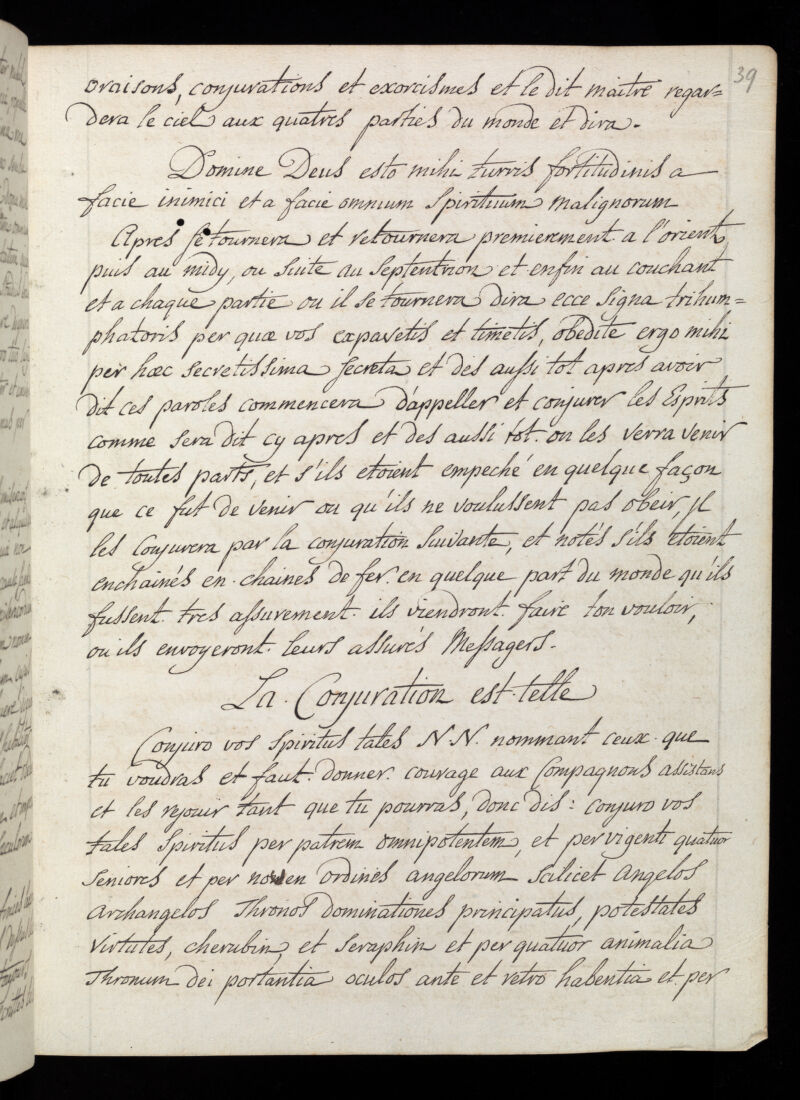 39
oraisons, conjurations et exorcismes et le dit maitre regar=
dera le ciel aux quatres parties du monde et dira.
Domine Deus esto mihi turris fortitudinis a
facie inimici et a facie omnium Spirituum malignorum
Apres se tournera et retournera premierement a l'orient,
puis au midy, ou suite au Septentrion et enfin au couchant
et a chaque partie ou il se tournera dira ecce signa trihum=
phatoris per quæ vos expavetis et timetis, obedite ergo mihi
per hæc secretissima secreta et des aussi tot apres avoir
dit ces paroles commencera d'appeller et conjurer les Esprits
comme sera dit cy apres et des aussi tot. on les verra venir
de toutes parts, et s'ils etoient empeché en quelque façon
que ce fut de venir ou qu'ils ne voulussent pas obeir, jl
les conjurera par la conjuration suivante, et notés s'ils etoient
enchainés en chaines de fer en quelque part du monde qu'ils
fussent tres assurement ils viendront faire ton vouloir,
ou ils envoyeront leurs assurés Messagers.
La Conjuration est telle
Conjuro vos spiritus tales N N. nommant ceux que
tu voudras et faut donner courage aux Compagnons assistans
et les rejouir tant que tu pourras, donc dis: conjuro vos
tales Spiritus per patrem omnipotentem, et per vigenti quatuor
Seniores et per noven ordines angelorum scilicet Angelos
Archangelos Thronos dominationes principatus, potestates
virtutes, cherubin, et Seraphin et per quatuor animalia
Thronum dei portantia oculos ante et retro habentia et per